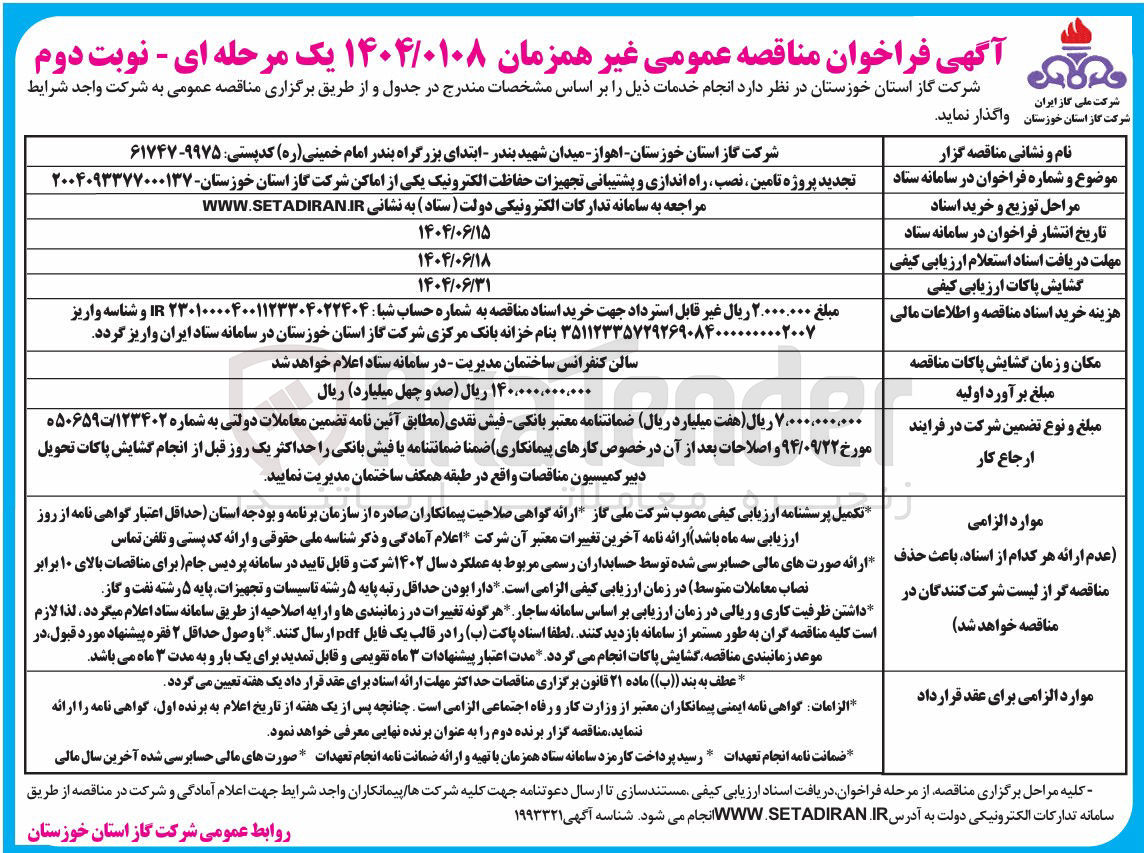 آگهی فراخوان مناقصه عمومی غیر همزمان ۱۴۰۴/۰۱۰۸ یک مرحله ای - نوبت دوم
شرکت ملی گاز ایران
شرکت گاز استان خوزستان
شرکت گاز استان خوزستان در نظر دارد انجام خدمات ذیل را بر اساس مشخصات مندرج در جدول و از طریق برگزاری مناقصه عمومی به شرکت واجد شرایط
واگذار نماید.
نام و نشانی مناقصه گزار
شرکت گاز استان خوزستان-اهواز-میدان شهید بندر -ابتدای بزرگراه بندر امام خمینی(ره) کدپستی: ۹۹۷۵-۶۱۷۴۷
موضوع و شماره فراخوان در سامانه ستاد
تجدید پروژه تامین ، نصب ، راه اندازی و پشتیبانی تجهیزات حفاظت الکترونیک یکی از اماکن شرکت گاز استان خوزستان-۲۰۰۴۰۹۳۳۷۷۰۰۰۱۳۷
مراحل توزیع و خرید اسناد
مراجعه به سامانه تدارکات الکترونیکی دولت ( ستاد ) به نشانی WWW.SETADIRAN.IR
تاریخ انتشار فراخوان در سامانه ستاد
۱۴۰۴/۰۶/۱۵
مهلت دریافت اسناد استعلام ارزیابی کیفی
۱۴۰۴/۰۶/۱۸
گشایش پاکات ارزیابی کیفی
۱۴۰۴/۰۶/۳۱
هزینه خرید اسناد مناقصه و اطلاعات مالی
مبلغ ۲.۰۰۰.۰۰۰ ریال غیر قابل استرداد جهت خرید اسناد مناقصه به شماره حساب شبا : IR ۲۳۰۱۰۰۰۰۴۰۰۱۱۲۳۳۰۴۰۲۲۴۰۴ و شناسه واریز
۳۵۱۱۲۳۳۵۷۲۹۲۶۹۰۸۴۰۰۰۰۰۰۰۰۰۲۰۰۷ بنام خزانه بانک مرکزی شرکت گاز استان خوزستان در سامانه ستاد ایران واریز گردد.
مکان و زمان گشایش پاکات مناقصه
سالن کنفرانس ساختمان مدیریت -در سامانه ستاد اعلام خواهد شد
مبلغ برآورد اولیه
۱۴۰،۰۰۰،۰۰۰،۰۰۰ ریال (صد و چهل میلیارد) ریال
مبلغ و نوع تضمین شرکت در فرایند
ارجاع کار
۷،۰۰۰،۰۰۰،۰۰۰ ریال(هفت میلیارد ریال) ضمانتنامه معتبر بانکی-فیش نقدی(مطابق آئین نامه تضمین معاملات دولتی به شماره ۱۲۳۴۰۲/ت۵۰۶۵۹ ه
مورخ ۹۴/۰۹/۲۲ و اصلاحات بعد از آن درخصوص کارهای پیمانکاری)ضمنا ضمانتنامه یا فیش بانکی را حداکثر یک روز قبل از انجام گشایش پاکات تحویل
دبیر کمیسیون مناقصات واقع در طبقه همکف ساختمان مدیریت نمایید.
موارد الزامی
(عدم ارائه هر کدام از اسناد، باعث حذف
مناقصه گر از لیست شرکت کنندگان در
مناقصه خواهد شد)
*تکمیل پرسشنامه ارزیابی کیفی مصوب شرکت ملی گاز *ارائه گواهی صلاحیت پیمانکاران صادره از سازمان برنامه و بودجه استان (حداقل اعتبار گواهی نامه از روز
ارزیابی سه ماه باشد)ارائه نامه آخرین تغییرات معتبر آن شرکت *اعلام آمادگی و ذکر شناسه ملی حقوقی و ارائه کد پستی و تلفن تماس
*ارائه صورت های مالی حسابرسی شده توسط حسابداران رسمی مربوط به عملکرد سال ۱۴۰۲ شرکت و قابل تایید در سامانه پردیس جام(برای مناقصات بالای ۱۰ برابر
نصاب معاملات متوسط) در زمان ارزیابی کیفی الزامی است.*دارا بودن حداقل رتبه پایه ۵ رشته تاسیسات و تجهیزات، پایه ۵ رشته نفت و گاز.
*داشتن ظرفیت کاری و ریالی در زمان ارزیابی بر اساس سامانه ساجار.*هرگونه تغییرات در زمانبندی ها و ارایه اصلاحیه از طریق سامانه ستاد اعلام میگردد ، لذا لازم
است کلیه مناقصه گران به طور مستمر از سامانه بازدید کنند. ،لطفا اسناد پاکت (ب) را در قالب یک فایل pdf ارسال کنند.*با وصول حداقل ۲ فقره پیشنهاد مورد قبول،در
موعد زمانبندی مناقصه،گشایش پاکات انجام می گردد.*مدت اعتبار پیشنهادات ۳ ماه تقویمی و قابل تمدید برای یک بار و به مدت ۳ ماه می باشد.
موارد الزامی برای عقد قرارداد
*عطف به بند ((ب)) ماده ۲۱ قانون برگزاری مناقصات حداکثر مهلت ارائه اسناد برای عقد قرار داد یک هفته تعیین می گردد.
*الزامات: گواهی نامه ایمنی پیمانکاران معتبر از وزارت کار و رفاه اجتماعی الزامی است . چنانچه پس از یک هفته از تاریخ اعلام به برنده اول، گواهی نامه را ارائه
ننماید،مناقصه گزار برنده دوم را به عنوان برنده نهایی معرفی خواهد نمود.
*ضمانت نامه انجام تعهدات * رسید پرداخت کارمزد سامانه ستاد همزمان با تهیه و ارائه ضمانت نامه انجام تعهدات *صورت های مالی حسابرسی شده آخرین سال مالی
- کلیه مراحل برگزاری مناقصه، از مرحله فراخوان،دریافت اسناد ارزیابی کیفی ،مستندسازی تا ارسال دعوتنامه جهت کلیه شرکت ها/پیمانکاران واجد شرایط جهت اعلام آمادگی و شرکت در مناقصه از طریق
سامانه تدارکات الکترونیکی دولت به آدرس WWW.SETADIRAN.IR انجام می شود. شناسه آگهی ۱۹۹۳۳۲۱
روابط عمومی شرکت گاز استان خوزستان